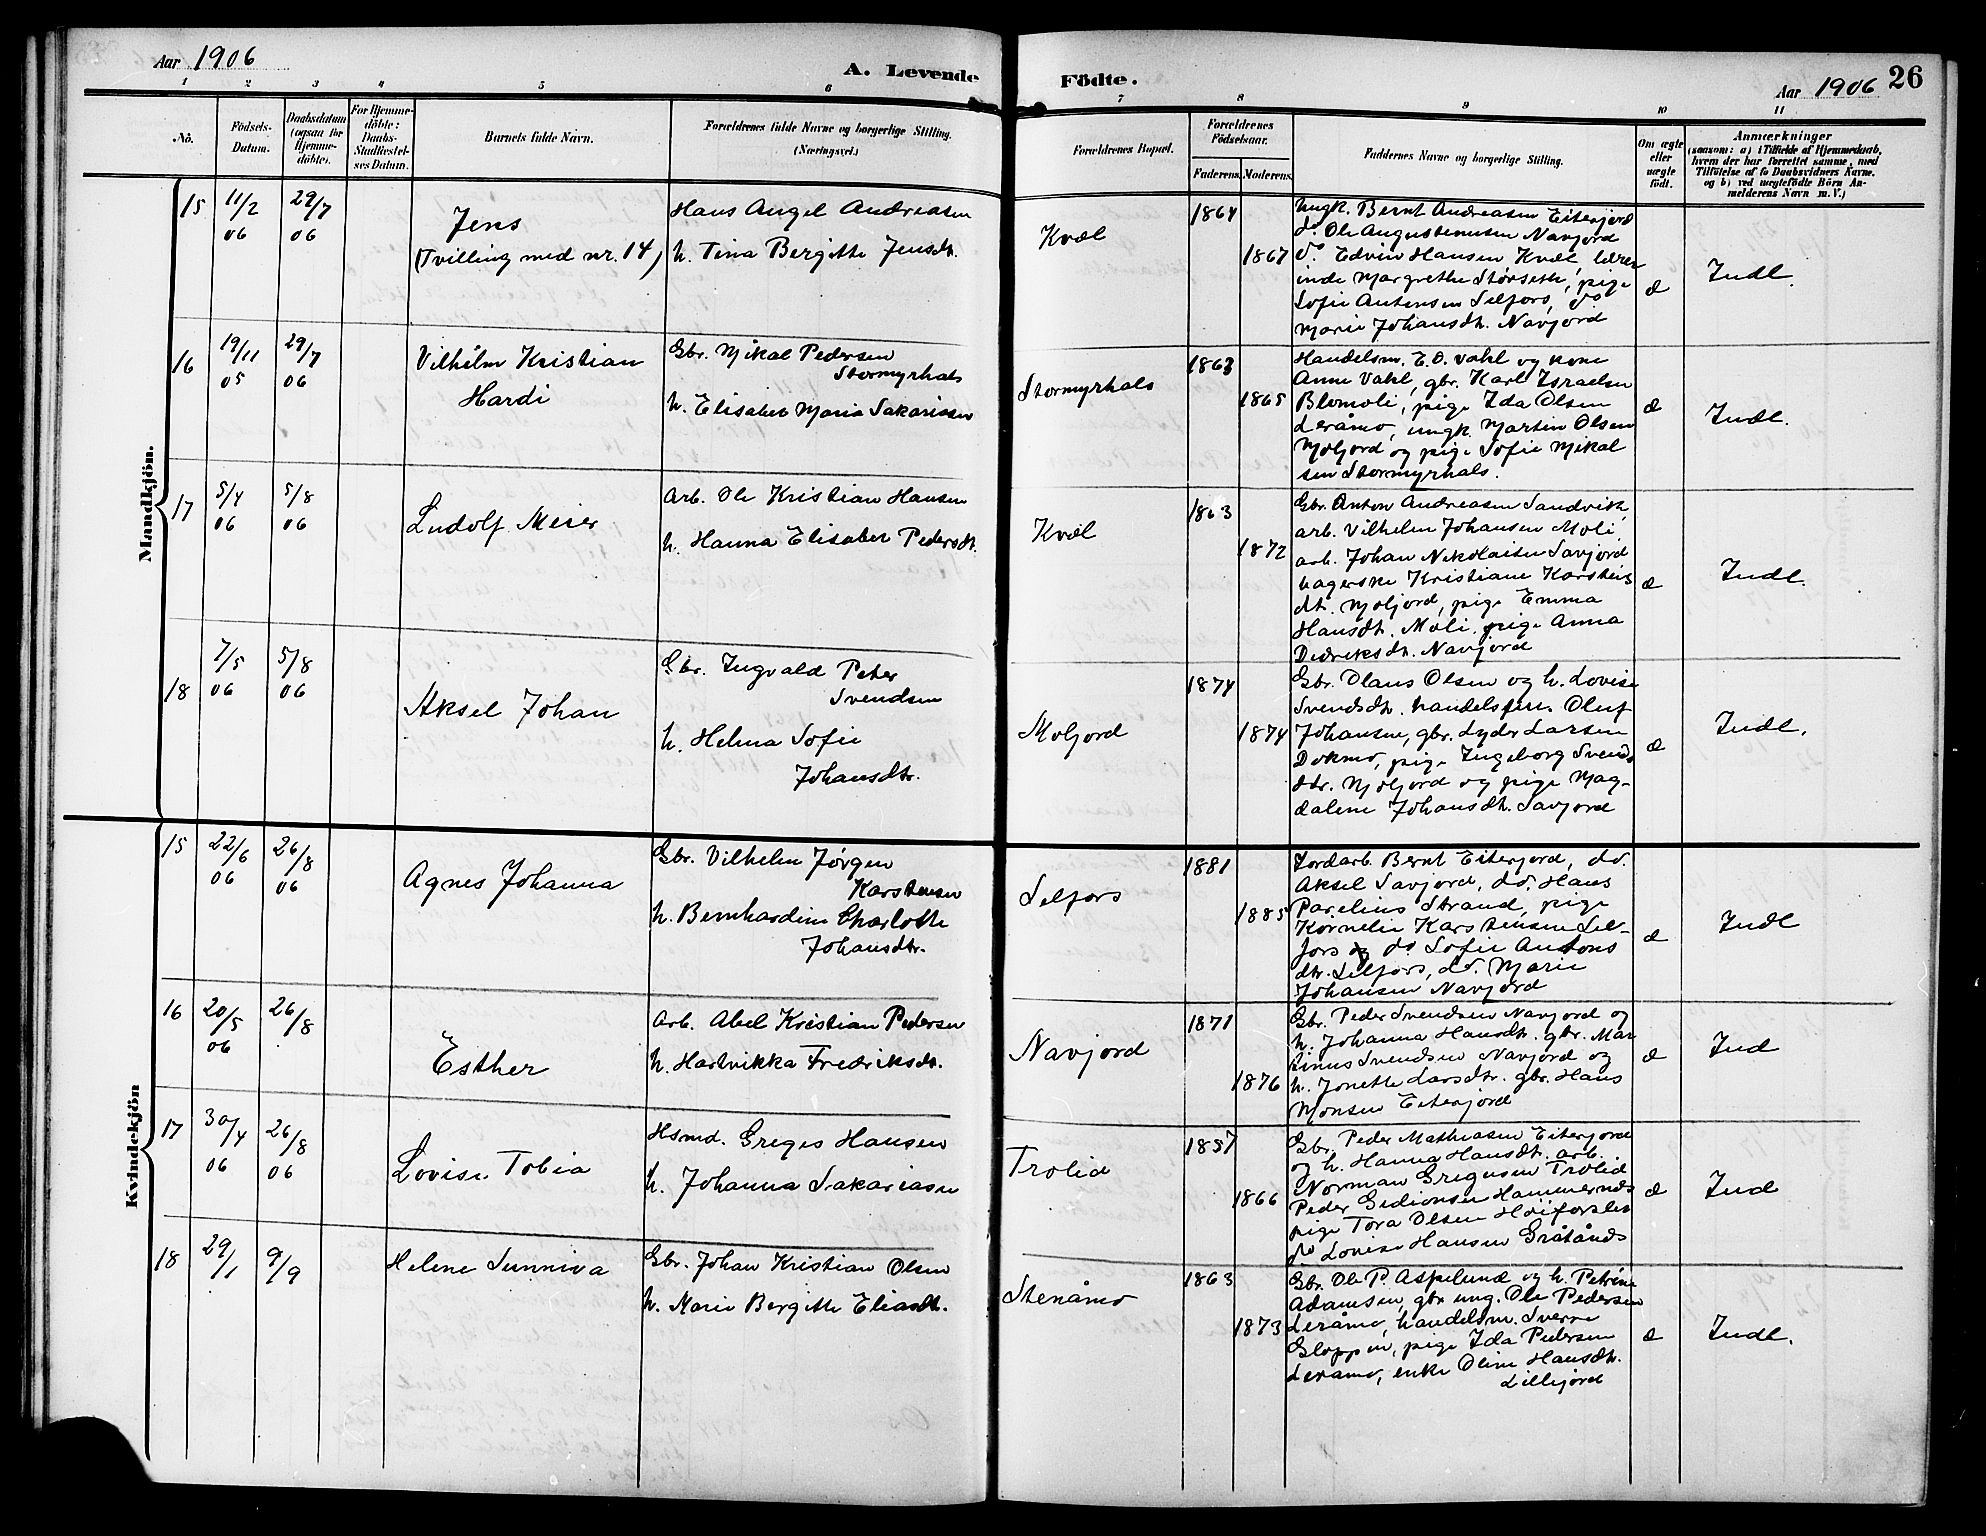 Aar 1906
A. Levende
Födte.
Aar 1906
26
1 2 3 4 5 6 7 8 9 10 11
Nö.
Födsels-
Datum.
Daabsdatum
(ogsaa for
Hjemme-
döbte).
For Hjemme-
döbte:
Daabs-
Stadfæstel-
ses Datum.
Barnets fulde Navn.
Forældrenes fulde Navne og borgerlige Stilling.
(Næringsvei.)
Forældrenes Bopæl.
Forældrenes
Födselsaar.
Faderens.
Moderens.
Faddernes Navne og borgerlige Stilling.
Om ægte
eller
uægte
födt.
Anmærkninger
(saasom: a) i Tilfælde af Hjemmedaab,
hvem der har forrettet samme, med
Tilföielse af to Daabsvidners Navne,
og b) ved uægtefödte Börn An-
melderens Navn m. V.)
Mandkjön.
15
11/2
06
29/7
06
Jens
(Tvilling med nr. 14)
Hans Angel Andreasen
h. Tina Bergitte Jensdt.
Kvæl
1864
1867
Ungk. Bernt Andreasen Eiterjord
do Ole Augustinusen Navjord
do. Edvin Hansen Kvæl lærer
inde Margrethe Størseth, pige
Sofie Antonsen Selfors, do
Marie Johansdt. Navjord
æ
Indl.
16
19/11
05
29/7
06
Vilhelm Kristian
Hardi
Gbr. Mikal Pedersen
Stormyrhals
h. Elisabet Maria Sakariasen
Stormyrhals
1863
1865
Handelsm. E. O. Vahl og kone
Anne Vahl, gbr. Karl Israelsen
Blomoli, pige Ida Olsen
Leråmo, ungk. Martin Olsen
Moljord og pige Sofie Mikal
sen Stormyrhals.
æ
Indl.
17
5/4
06
5/8
06
Ludolf Meier
Arb. Ole Kristian Hansen
h. Hanna Elisabet Pedersdt.
Kvæl
1863
1872
Gbr. Anton Andreasen Sandvik,
arb. Vilhelm Johansen Moli,
arb. Johan Nikolaisen Savjord
bagerske Kristiane Karstens
dt. Moljord, pige Emma
Hansdt. Moli, pige Anna
Dedriksdt. Navjord
æ
Indl.
18
7/5
06
5/8
06
Aksel Johan
Gbr. Ingvald Peter
Svendsen
h. Helma Sofie
Johansdtr.
Moljord
1874
1874
Gbr. Olaus Olsen og h. Lovise
Svendsdt. handelsfm. Oluf
Johansen, gbr. Lyder Larsen
Dokmo, pige Ingeborg Svends
dtr. Moljord og pige Mag-
dalene Johansdt. Savjord
æ
Indl.
Kvindekjön
15
22/6
06
26/8
06
Agnes Johanna
Gbr. Vilhelm Jørgen
Karstensen
h. Bernhardine Charlotte
Johansdtr.
Selfors
1881
1885
Jordarb. Bernt Eiterjord, do.
Aksel Savjord, do. Hans
Parelius Strand, pige
Kornelie Karstensen Sel-
fors og do Sofie Antons
dtr. Selfors, do. Marie
Johansen Navjord
æ
Indl
16
20/5
06
26/8
Esther
Arb. Abel Kristian Pedersen
h. Hartvikka Fredriksdt.
Navjord
1871
1876
Gbr. Peder Svendsen Navjord og
h. Johanna Hansdt. gbr. Mar
tinus Svendsen Navjord og
h. Jonette Larsdtr. gbr. Hans
Monsen Eiterjord
æ
Ind
17
30/4
06
26/8
06
Lovise Tobia
Hsmd. Greges Hansen
h. Johanna Sakariasen
Trolid
1857
1866
Gbr. Peder Mathiasen Eiterjord
og h. Hanna Hansdt. arb.
Norman Gregusen Trolid
Peder Gedionsen Hammernes
pige Tora Olsen Høiforslen
do Lovise Hansen Gråtånes
æ
Ind
18
29/1
9/9
Helene Sunniva
Gbr. Johan Kristian Olsen
h. Marie Bergitte Eliasdt.
Stenåmo
1863
1873
Gbr. Ole P. Aspelund og h. Petrine
Adamsen, gbr ung. Ole Pedersen
Leråmo, handelsm. Sverre
Gloppen, pige Ida Pedersen
Leråmo, enke Oline Hansdt.
Lillejord
æ
Indl.